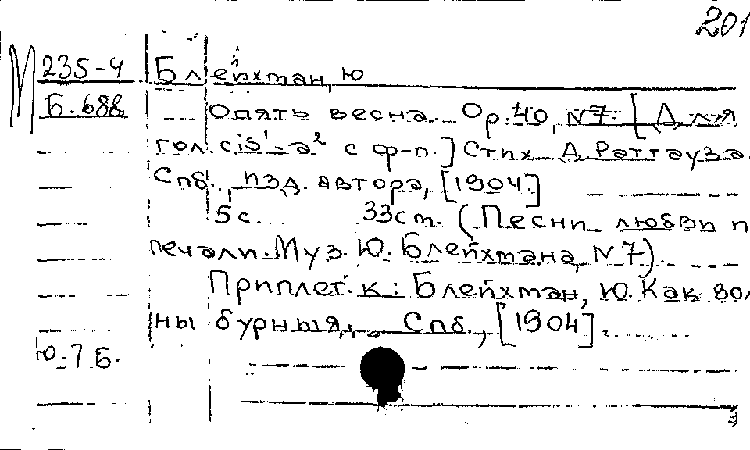 201
М 235-4 Блейхман, Ю
Б. 688
Опять весна. Op. 40, №7. [Для
гол. cis¹-a² с ф-п.] Стих. Д. Ратгауза.
Спб., изд. автора, [1904]
5 с. 33 см. (Песни любви и
печали. Муз. Ю. Блейхмана, №7).
Приплет. к: Блейхман, Ю. Как вол
ны бурныя,. Спб., [1904].
Ю-7 Б.